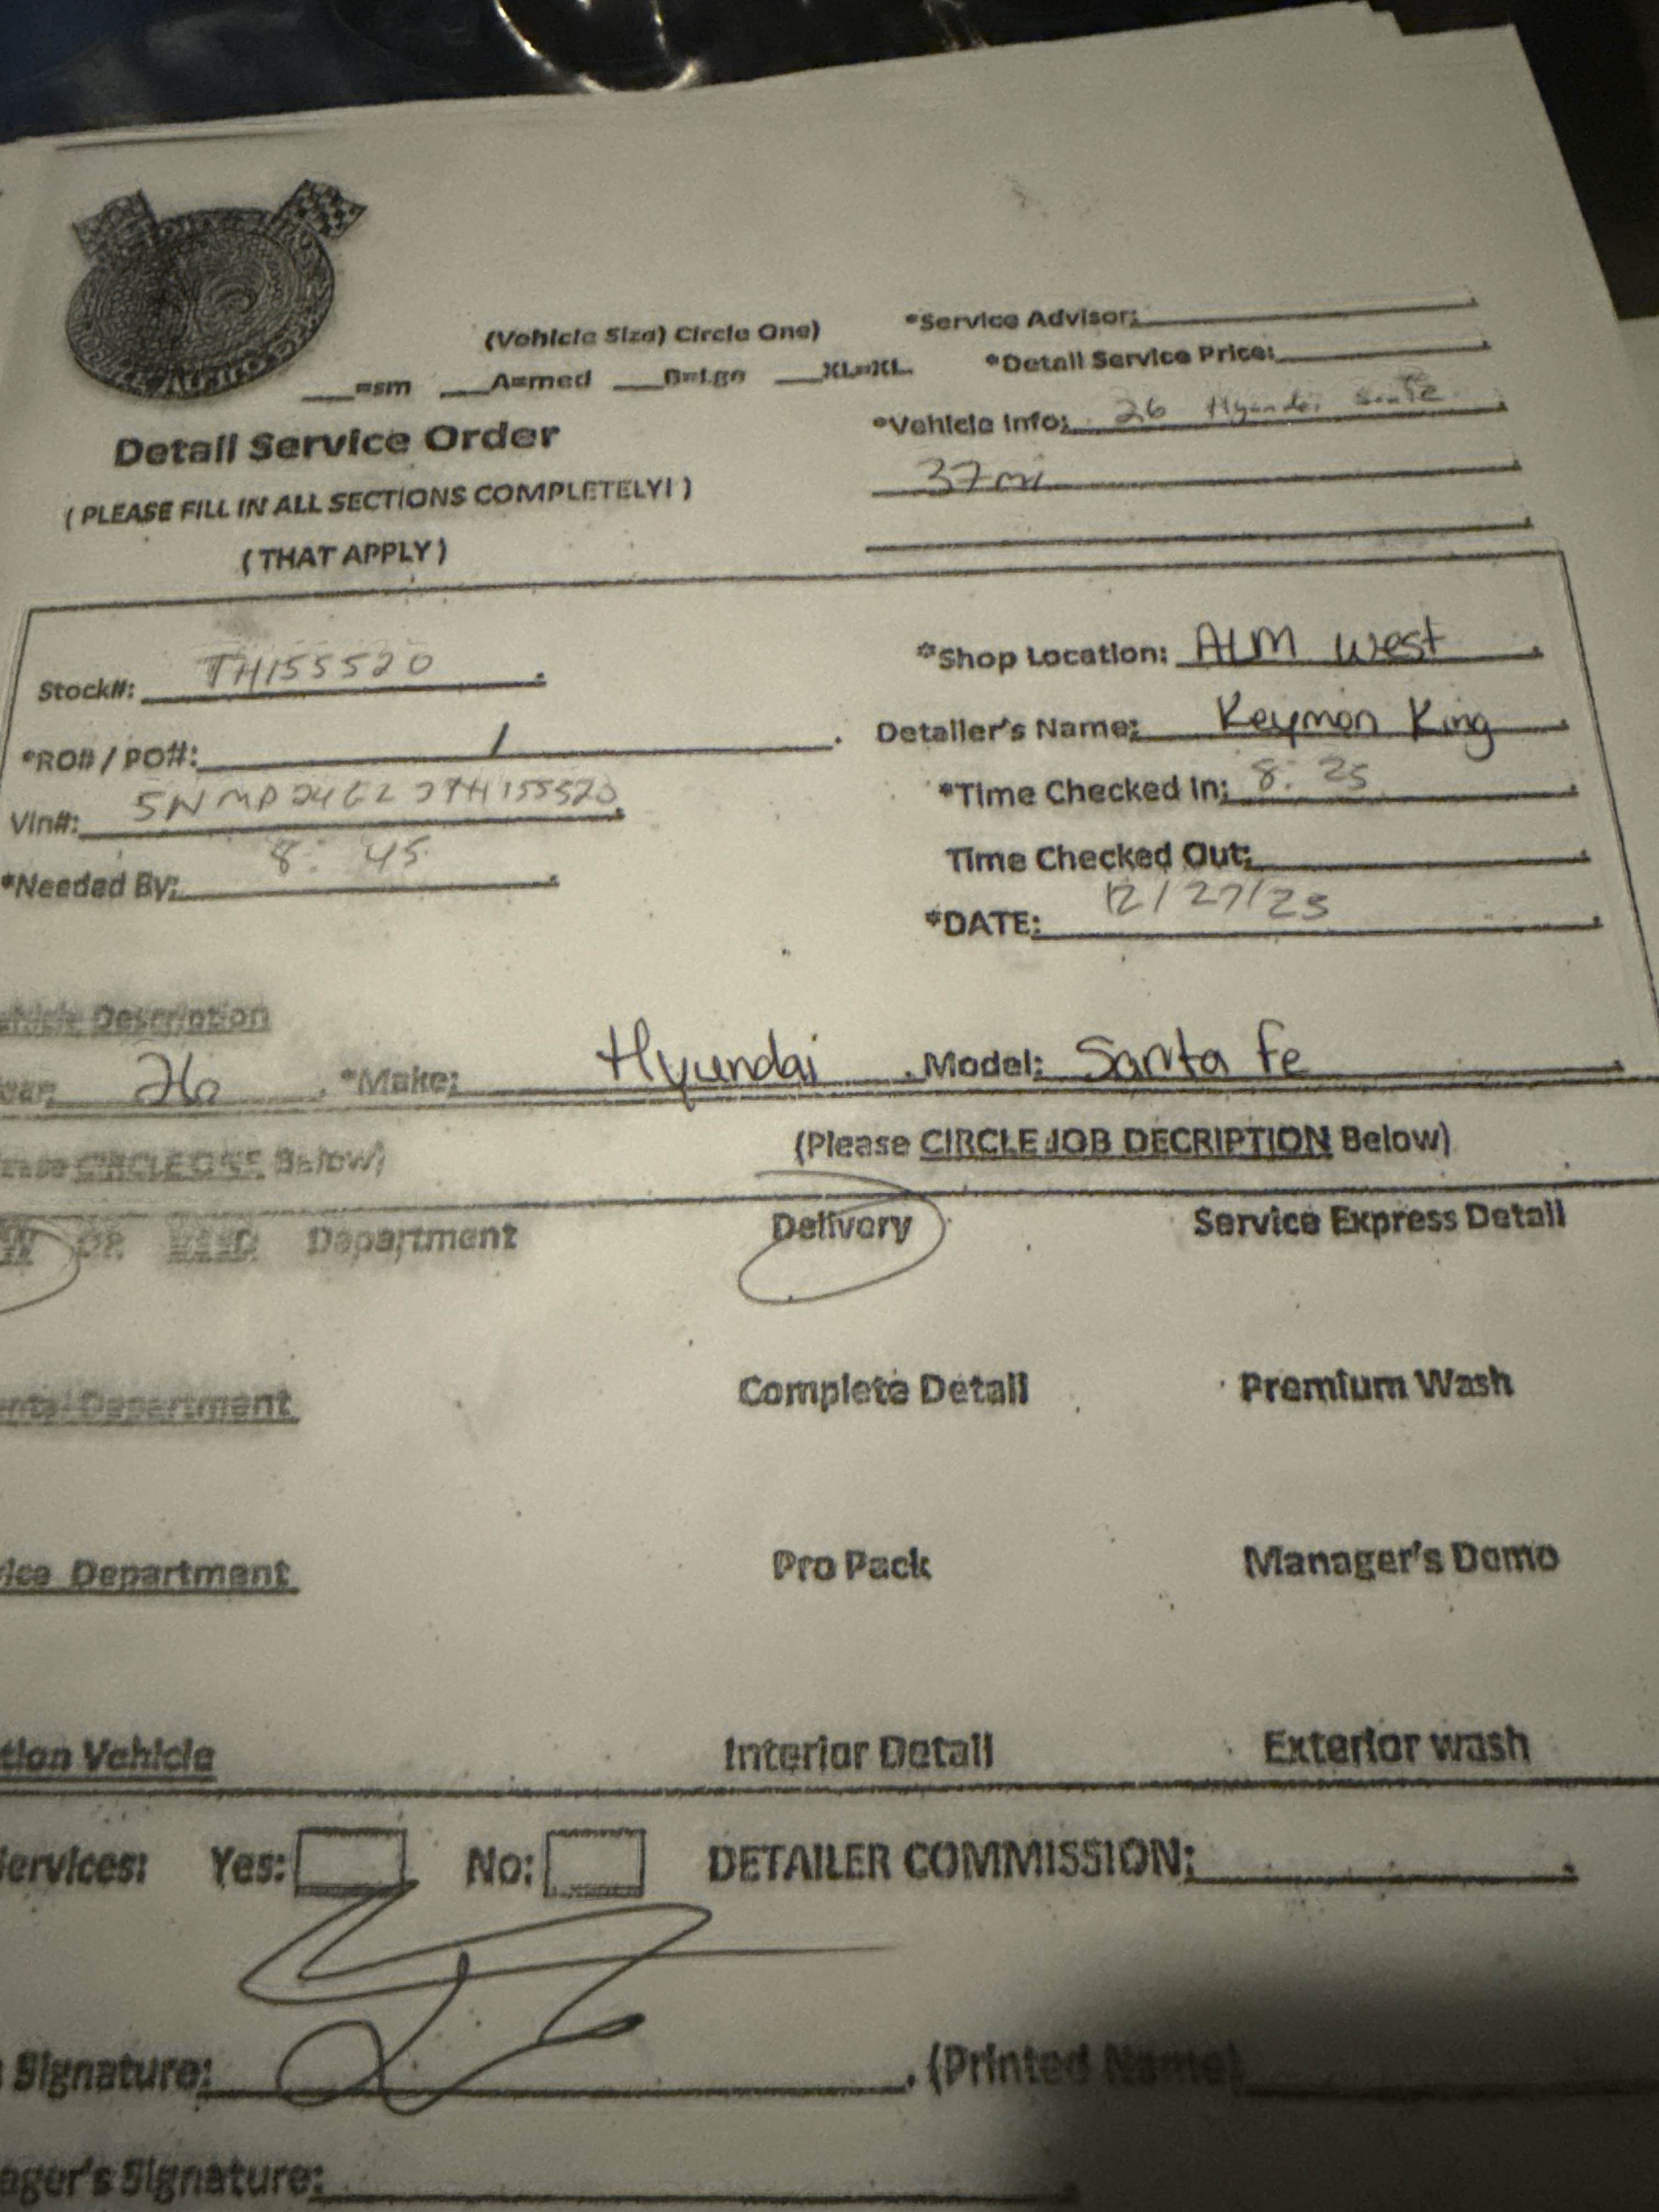 (Vehicle Size) Circle One)
*Service Advisor:
___=sm ___A=med ___B=Lge ___XL=XL
*Detail Service Price:
Detail Service Order
*Vehicle Info: 26 Hyundai Santa Fe
(PLEASE FILL IN ALL SECTIONS COMPLETELY!)
37 mi
(THAT APPLY)
Stock#: TH155520
*Shop Location: ALM West
*RO# / PO#: /
Detailer's Name: Keymon King
Vin#: 155520
*Time Checked In: 8:25
*Needed By: 8:45
Time Checked Out:
*DATE: 12/27/25
Description
26 *Make: Hyundai Model: Santa Fe
CIRCLE ONE Below)
(Please CIRCLE JOB DECRIPTION Below)
OR USED Department
Delivery
Service Express Detail
Department
Complete Detail
Premium Wash
Department
Pro Pack
Manager's Demo
Vehicle
Interior Detail
Exterior wash
ervices: Yes: No: DETAILER COMMISSION:
Signature: (Printed Name)
ager's Signature: